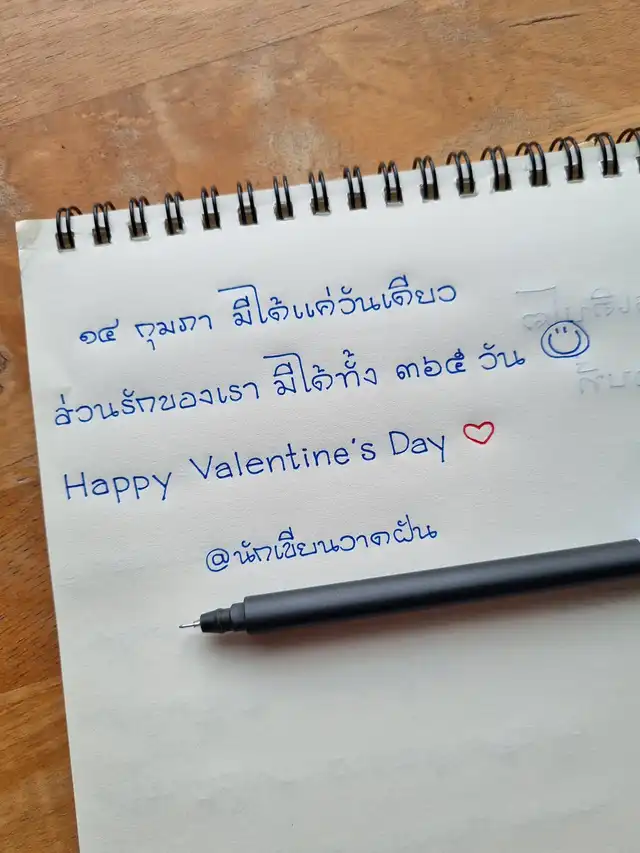 ๑๔ กุมภา มีได้แค่วันเดียว
ส่วนรักของเรา มีได้ทั้ง ๓๖๕ วัน
Happy Valentine's Day
@นักเขียนวาดฝัน